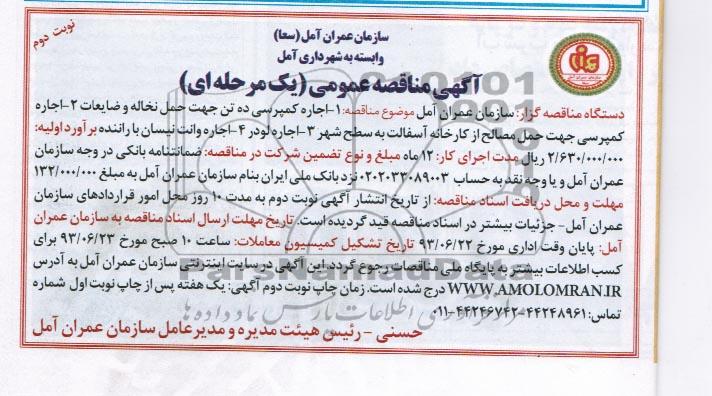 نوبت دوم
سازمان عمران آمل (سعا)
وابسته به شهرداری آمل
آگهی مناقصه عمومی (یک مرحله ای)
دستگاه مناقصه گزار: سازمان عمران آمل موضوع مناقصه: ۱-اجاره کمپرسی ده تن جهت حمل نخاله و ضایعات ۲-اجاره
کمپرسی جهت حمل مصالح از کارخانه آسفالت به سطح شهر ۳-اجاره لودر ۴-اجاره وانت نیسان با راننده برآورد اولیه:
۲/۶۳۰/۰۰۰/۰۰۰ ریال مدت اجرای کار: ۱۲ ماه مبلغ و نوع تضمین شرکت در مناقصه: ضمانتنامه بانکی در وجه سازمان
عمران آمل و یا وجه نقد به حساب ۰۲۰۲۰۳۳۰۸۹۰۰۳ نزد بانک ملی ایران بنام سازمان عمران آمل به مبلغ ۱۳۲/۰۰۰/۰۰۰
مهلت و محل دریافت اسناد مناقصه: از تاریخ انتشار آگهی نوبت دوم به مدت ۱۰ روز محل امور قراردادهای سازمان
عمران آمل- جزئیات بیشتر در اسناد مناقصه قید گردیده است. تاریخ مهلت ارسال اسناد مناقصه به سازمان عمران
آمل: پایان وقت اداری مورخ ۹۳/۰۶/۲۲ تاریخ تشکیل کمیسیون معاملات: ساعت ۱۰ صبح مورخ ۹۳/۰۶/۲۳ برای
کسب اطلاعات بیشتر به پایگاه ملی مناقصات رجوع گردد. این آگهی در سایت اینترنتی سازمان عمران آمل به آدرس
WWW.AMOLOMRAN.IR درج شده است. زمان چاپ نوبت دوم آگهی: یک هفته پس از چاپ نوبت اول شماره
تماس: ۴۴۲۴۸۹۶۱-۴۴۲۴۶۷۴۲-۰۱۱
حسنی - رئیس هیئت مدیره و مدیرعامل سازمان عمران آمل